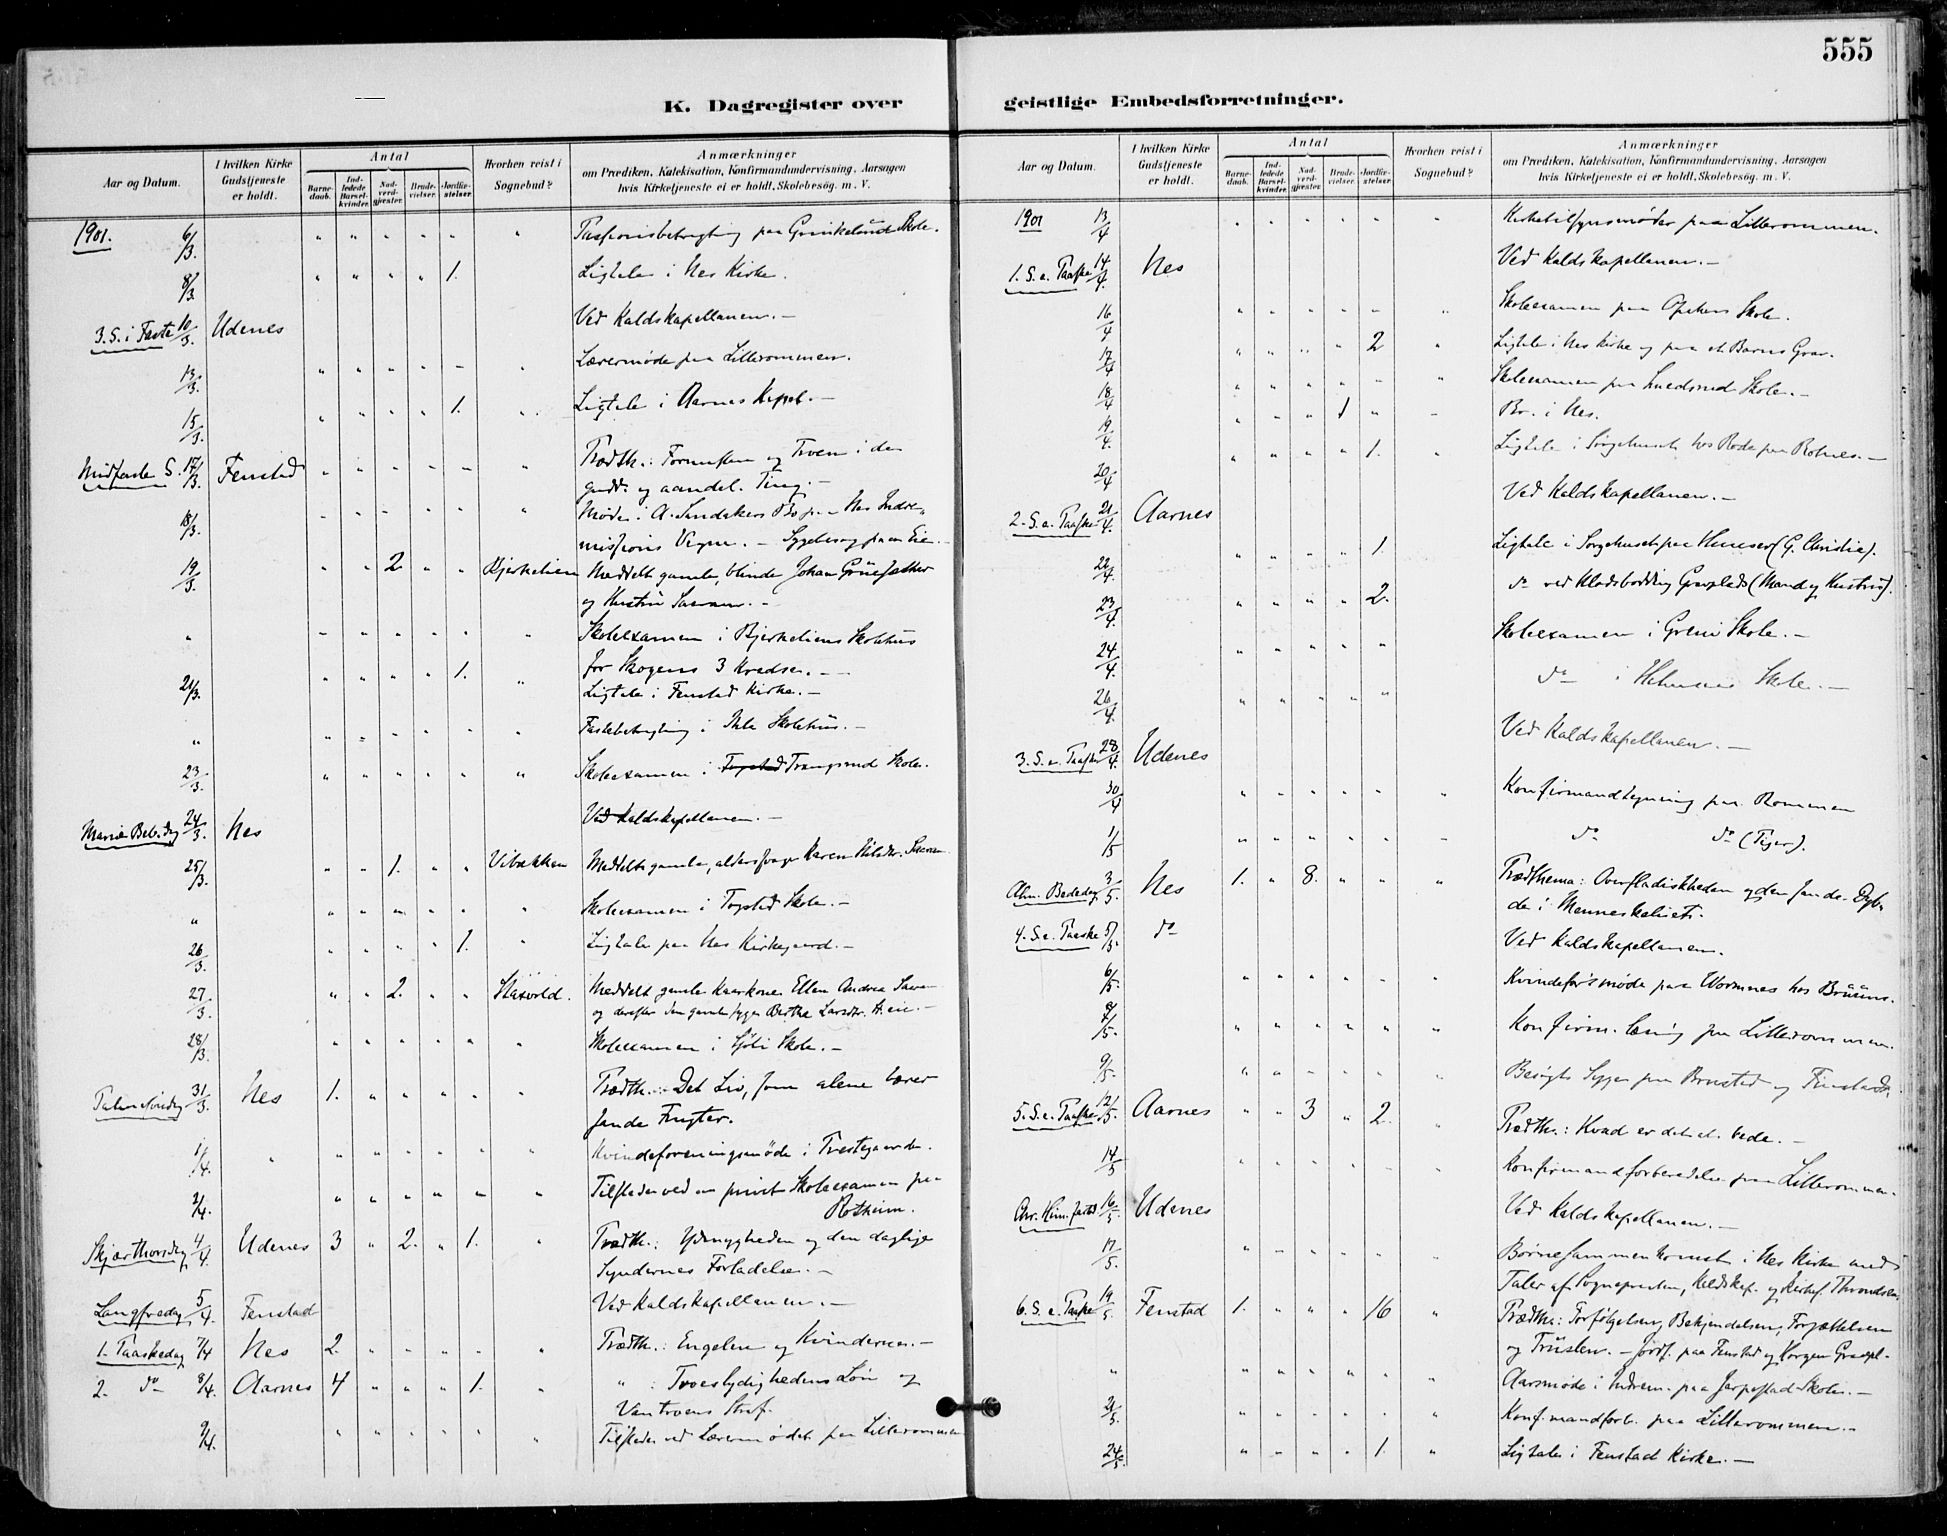 555
K. Dagregister over geistlige Embedsforretninger.
Aar og Datum.
I hvilken Kirke Gudstjeneste er holdt.
Antal
Barnedaab.
Indledede Barselkvinder.
Nadverdgjester.
Brudevielser.
Jordfæstelser.
Hvorhen reist i Sognebud?
Anmærkninger
om Prædiken, Katekisation, Konfirmandundervisning, Aarsagen
hvis Kirketjeneste ei er holdt, Skolebesøg. m. V.
1901. 6/3 " " " " " " Passionsbetragtning paa Skole.
8/3 " " " " 1. Ligtale i Nes Kirke.
3. S. i Faste 10/3 Udenes Ved Kaldskapellanen. –
13/3 " " " " – " Lærermøde paa Lillerommen.
15/3 " " " " 1. " Ligtale i Aarnes Kapel. –
Midfaste S. 17/3 Fenstad " " " " " " Prædth.: Fornuften og Troen i den
gudd. og aandel. Ting. –
18/3 " " " " " " Møde i A. Sandakers Bo paa Nes Indre-
missions Vegne. – Sygebesøg paa Eie. –
19/3 " " 2. " " Bjerkelien Meddelt gamle, blinde Johan
og Hustru Sacram. –
" " " " " " " Skoleexamen i Bjerkeliens Skolehus
for Skogens 3 Kredse. –
21/3. " " " " 1. " Ligtale i Fenstad Kirke. –
" " " " " " " Fastebetragtning i Skolehus. –
23/3. " " " " " " Skoleexamen i Fogstad Trangsrud Skole.
Mariæ Beb. dag 24/3. Nes Ved Kaldskapellanen. –
25/3. " " 1. " " Vibækken Meddelt gamle, alderssvage Karen Nilsdr. Sacram.
" " " " " " " Skoleexamen i Fogstad Skole. –
26/3. " " " " 1. " Ligtale paa Nes Kirkegaard. –
27/3. " " 2. " " Meddelt gamle Kaarkone Ellen Andrea Sacr.
og derefter den gamle syge Berthe Larsdtr. –
28/3. " " " " " " Skoleexamen i Skole. –
Palmesøndag 31/3. Nes 1. " " " " " Prædth.: Det Liv, som alene bærer
sande Frugter.
1/4. " " " " " " " Kvindeforeningsmøde i Prestegaarden.
2/4. " " " " " " Tilstede ved en privat Skoleexamen paa
Rotheim.
Skjærthorsdag 4/4 Udenes 3 " 2. " 1. " Prædth.: Ydmygheden og den daglige
Syndernes Forladelse. –
Langfredag 5/4 Fenstad Ved Kaldskapellanen. –
1. Paaskedag 7/4 Nes 2. " " " " " Prædth.: Engelen og Kvinderne. –
2. do 8/4. Aarnes 4 " " " 1. " " : Troeslydighedens Løn og
Vantroens Straf.
9/4. " " " " " " Tilstede ved Lærermødet paa Lillerommen
Aar og Datum.
I hvilken Kirke Gudstjeneste er holdt.
Antal
Barnedaab.
Indledede Barselkvinder.
Nadverdgjester.
Brudevielser.
Jordfæstelser.
Hvorhen reist i Sognebud?
Anmærkninger
om Prædiken, Katekisation, Konfirmandundervisning, Aarsagen
hvis Kirketjeneste ei er holdt, Skolebesøg. m. V.
1901 13/4 " " " " " " Kirketilsynsmøde paa Lillerommen.
1. S. e. Paaske 14/4. Nes Ved Kaldskapellanen. –
16/4 " " " " " " Skoleexamen paa Skole.
17/4 " " " " 2 " Ligtale i Nes Kirke og paa et Barns Grav.
18/4 " " " " " " Skoleexamen paa Skole. –
19/4. " " " 1 " – Br. i Nes.
20/4 " " " " 1. " Ligtale i Sørgehuset hos paa –
2. S. e. Paaske 21/4. Aarnes Ved Kaldskapellanen. –
22/4. " " " " 1. " Ligtale i Sørgehuset paa (G. Christie).
23/4. " " " " 2. do ved Gravplads (Mand og Hustru).
24/4. " " " " " Skoleexamen i Skole. –
26/4. " " " " " do i Skole. –
3. S. e. Paaske 28/4. Udenes Ved Kaldskapellanen. –
30/4 " " " " " " Konfirmandlæsning paa Rommen
1/5 " " " " " – do do (Piger).
Alm. Bededag 3/5. Nes 1. " 8. " " " Prædthema: Overfladiskheden og den sande Dyb-
de i Menneskelivet.
4. S. e. Paaske 5/5. do Ved Kaldskapellanen.
6/5 " " " " " " Kvindeforsmøde paa Wormnes hos
8/5. " " " " " " Konfirm. læsning paa Lillerommen.
9/5. " " " " " " Besøgt Syge paa og
5. S. e. Paaske 12/5. Aarnes " " 3 " 2. " Prædth.: Hvad er det at bede. –
14/5 " " " " " " Konfirmandforberedelse paa Lillerommen.
Chr. Him. fartsd 16/5. Udenes Ved Kaldskapellanen. –
17/5. " " " " " " Børnesammenkomst i Nes Kirke med
Taler af Sognepresten, Kaldskap. og Throndsen
6. S. e. Paaske 19/5 Fenstad 1. " " " 16 " Prædth.: Forfølgelsen, Bekjendelsen, Forjættelsen
og Trøsten. – Jordf. paa Fenstad og Gravpl.
" " " " " " " Aarsmøde i Indrem. paa Skole. –
21/5. " " " " " " Konfirmandforb. paa Lillerommen. –
24/5 " " " " 1. " Ligtale i Fenstad Kirke. –